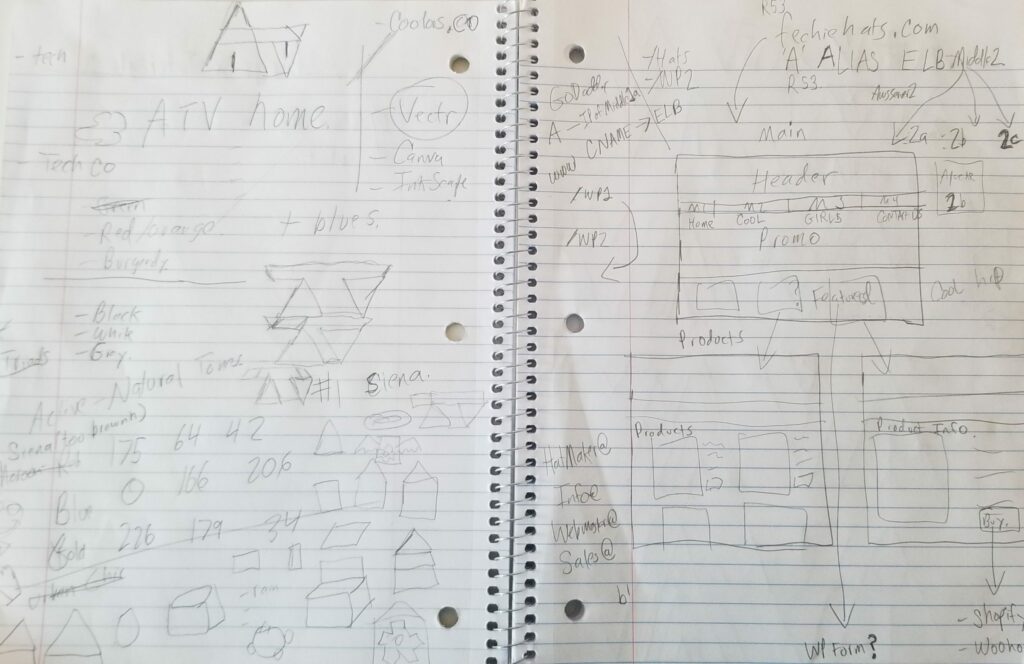 - Coolas.co
- tech
ATV home.
- Vectr
- Canva
- InkScape
- Tech co
- Green
- Red/orange
+ blues.
- Burgundy
- Black
- White
- Grey.
Triads
Active - Natural Tones
#1 Siena.
Siena (too brownn)
175 64 42
Blue
0 166 206
Gold
226 179 34
R53
techiehats.com
/Hats
- /WP2
A ALIAS ELB Middle2
R53.
GoDaddy
A -
CNAME → ELB
www
Main
2a 2b 2c
Header
2b
M1 M2 M3 M4
Home COOL GIRLS CONTACT US
/WP1
/WP2
Promo
? Featured
Cool
Products
Products
Product Info.
HatMaker@
Info@
Webmaster@
Sales@
Buy.
b'
- Shopify
- Wooho
WP Form?